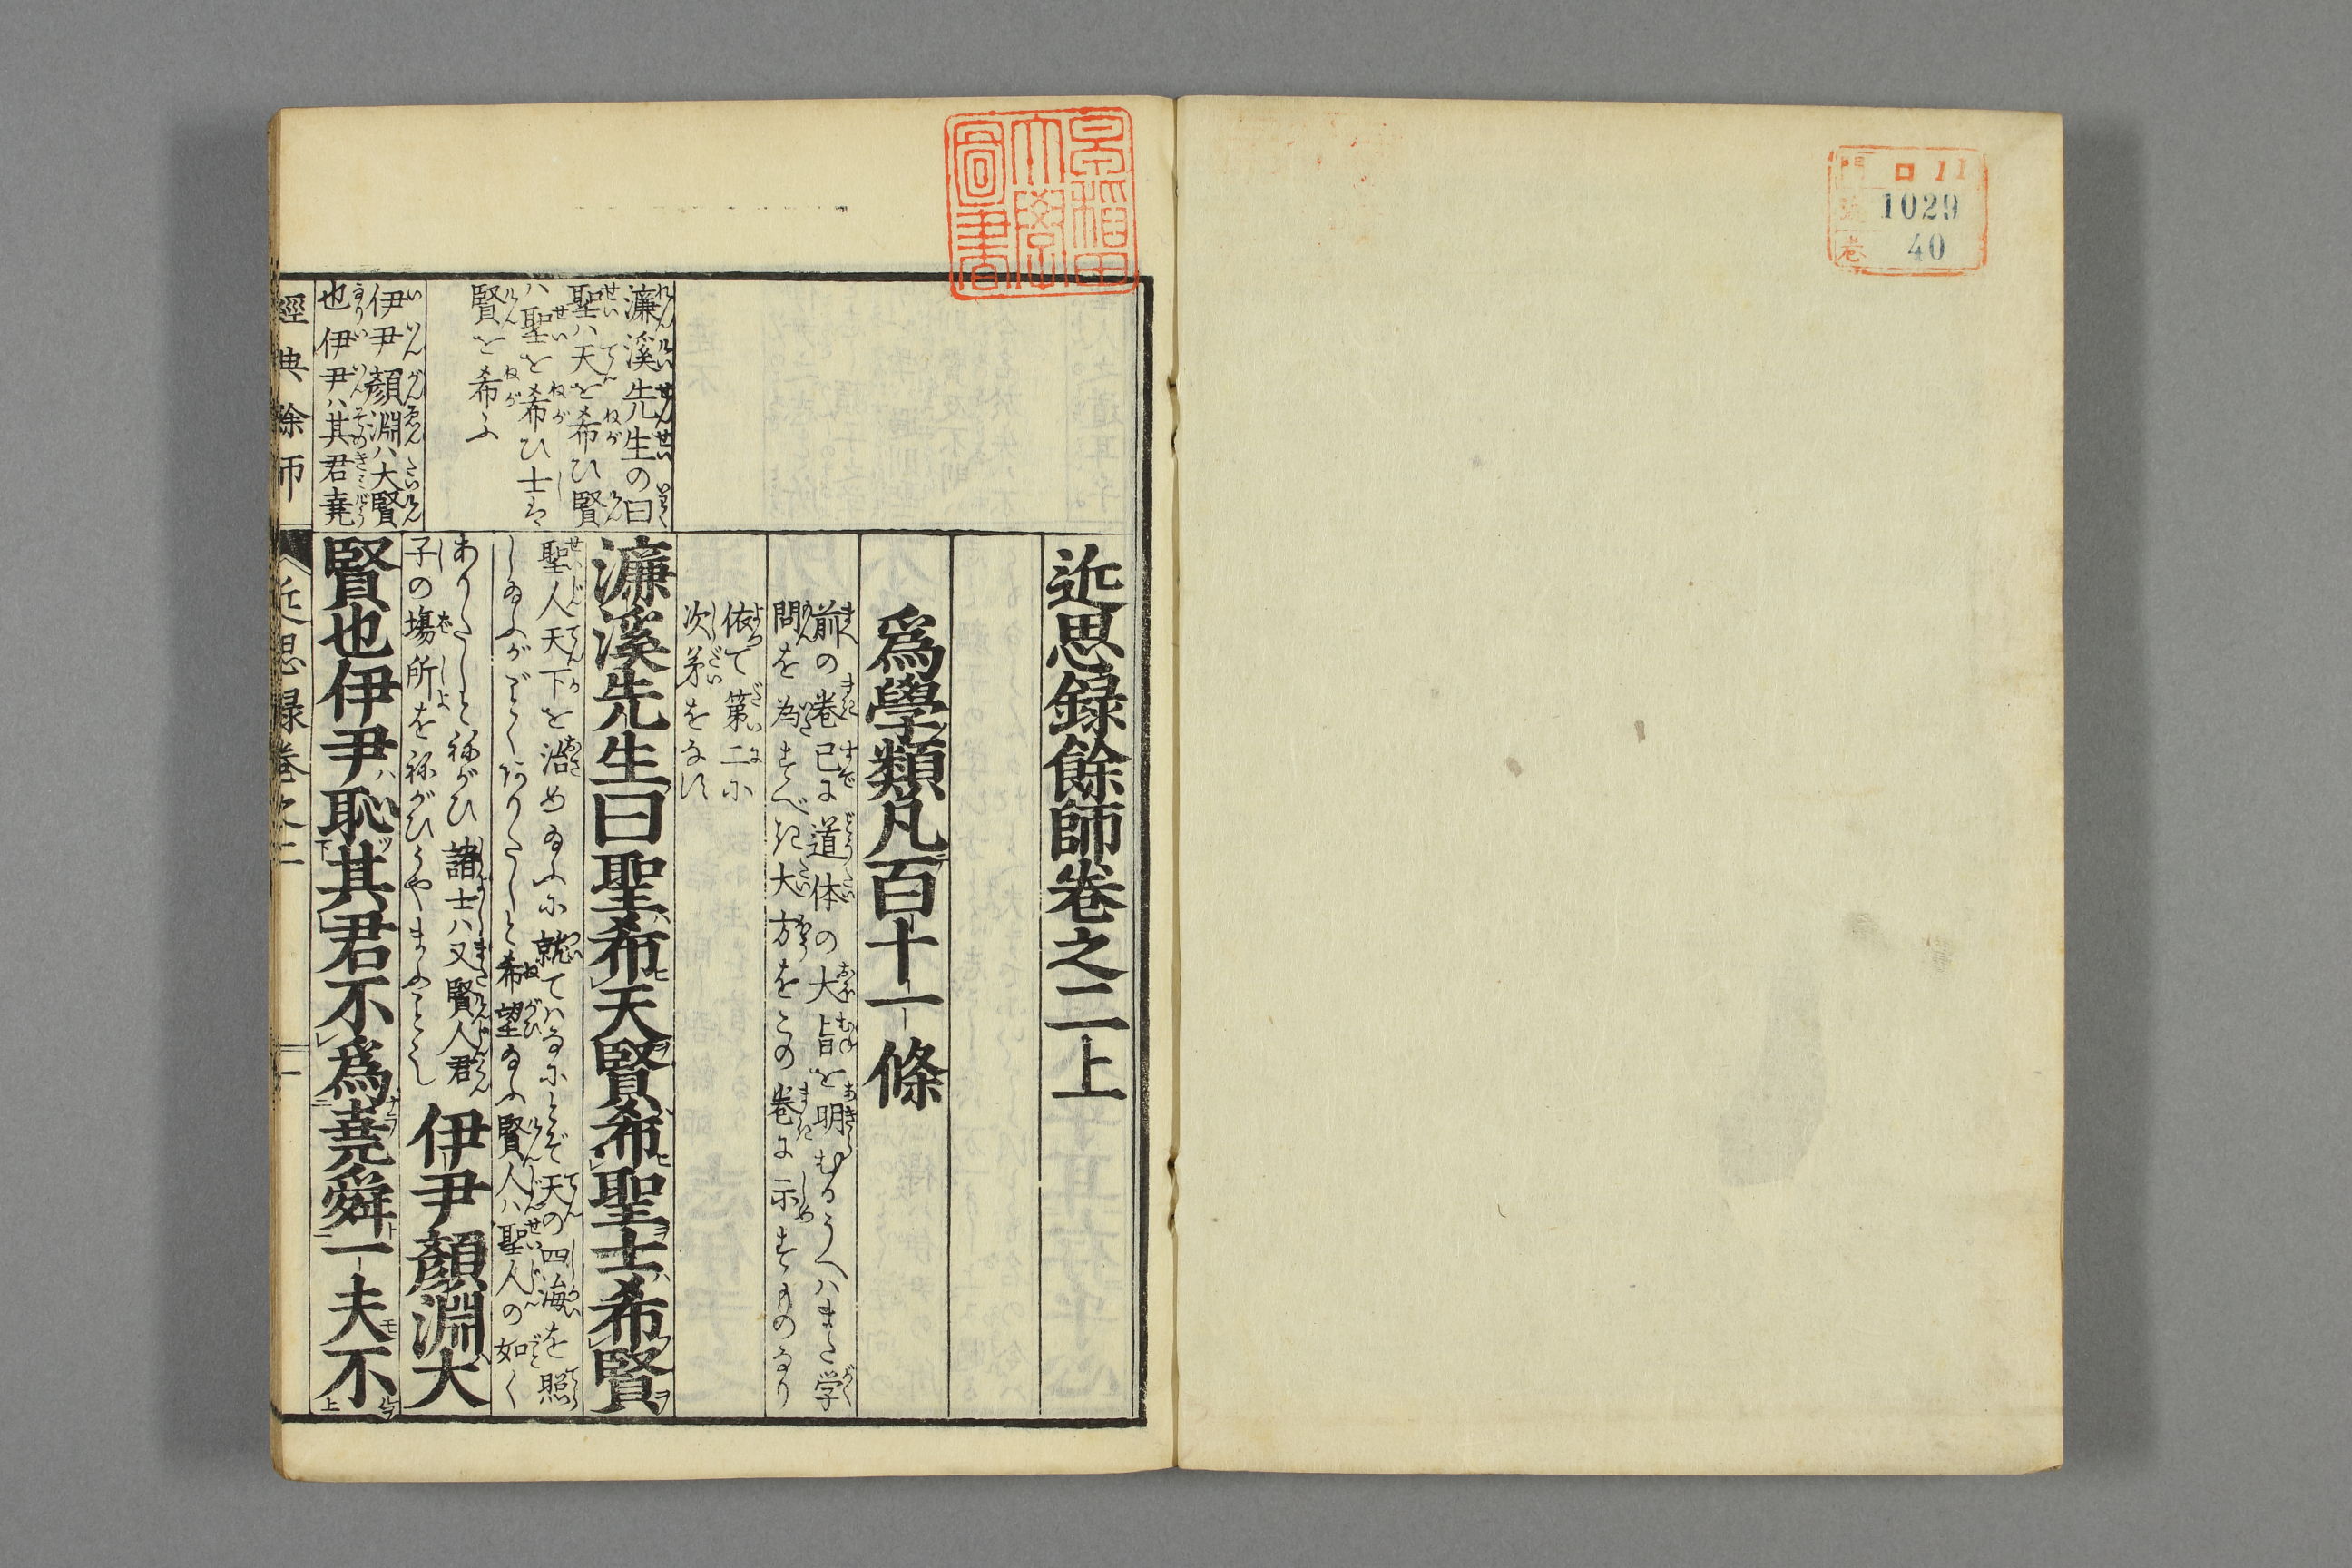 門 ロ11
號 1029
卷 40
早稲田
大學
圖書
近思録餘師巻之二上
為學類凡百十一條
前の巻已に道体の大旨を明むるうへハまた学
問を為すべき大方をこの巻に示すものなり
依て第二に
次第をなす
濂溪先生の曰
聖ハ天を希ひ賢
ハ聖を希ひ士は
賢を希ふ
濂溪先生曰聖希天賢希聖士希賢
聖人天下を治め給ふに就てハなにとぞ天の四海を照
し給ふがごとくありたしと希望給ふ賢人ハ聖人の如く
ありたしと祢がひ諸士ハ又賢人君
子の場所を祢がひうやまふことし
伊尹顏淵ハ大賢
也伊尹ハ其君堯
伊尹顏淵大
賢也伊尹恥其君不為堯舜一夫不
經典餘師
近思録巻之二
一